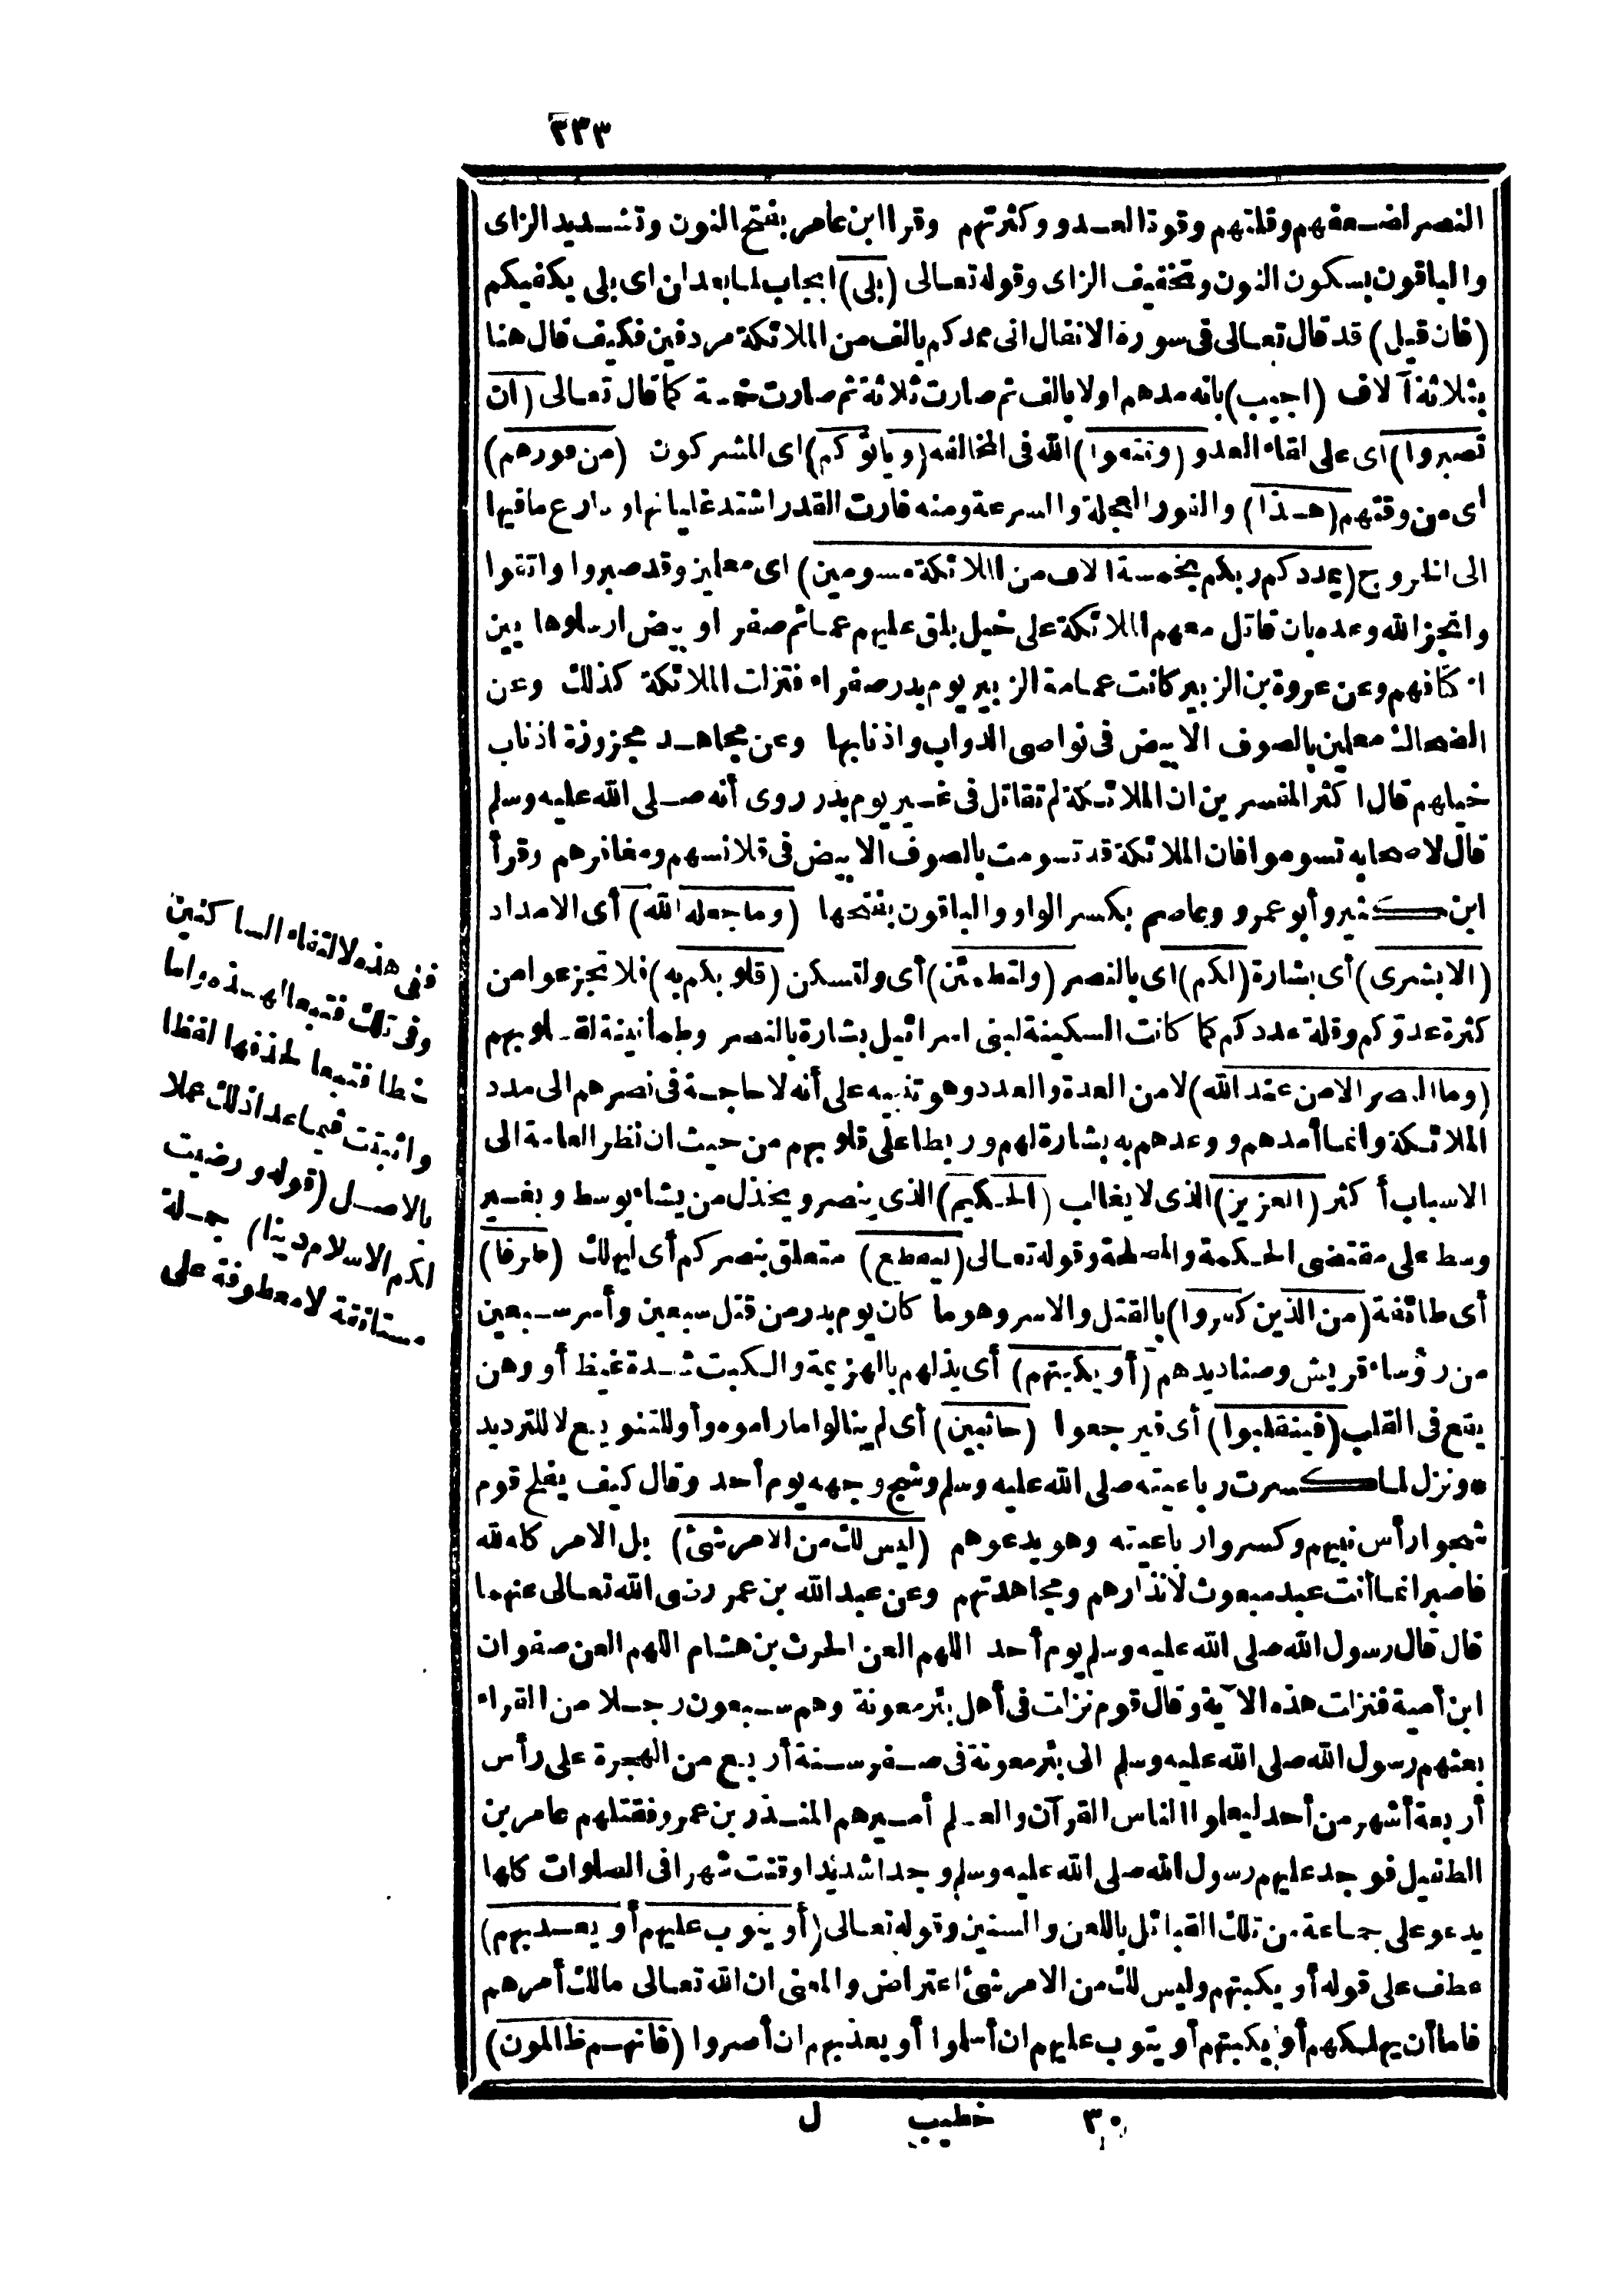 ٢٣٣
النصر لضعفهم وقلتهم وقوة العدو وكثرتهم وقرأ ابن عامر بفتح النون وتشديد الزاى
والباقون بسكون النون وتخفيف الزاى وقوله تعالى (بلى) ايجاب لما بعد لن اى بلى يكفيكم
(فان قيل) قد قال تعالى فى سورة الانفال انى ممدكم بالف من الملائكة مردفين فكيف قال هنا
بثلاثة آلاف (اجيب) بانه مدهم اولا بالف ثم صارت ثلاثة ثم صارت خمسة كما قال تعالى (ان
تصبروا) اى على لقاء العدو (وتتقوا) الله فى المخالفة (ويأتوكم) اى المشركون (من فورهم)
أى من وقتهم (هذا) والفور العجلة والسرعة ومنه فارت القدر اشتد غليانها وسارع مافيها
الى الخروج (يمددكم ربكم بخمسة آلاف من الملائكة مسومين) اى معلمين وقد صبروا واتقوا
وانجز الله وعده بان قاتل معهم الملائكة على خيل بلق عليهم عمائم صفر او بيض ارسلوها بين
اكتافهم وعن عروة بن الزبير كانت عمامة الزبير يوم بدر صفراء فنزلت الملائكة كذلك وعن
الضحاك معلمين بالصوف الابيض فى نواصى الدواب واذنابها وعن مجاهد مجزوزة اذناب
خيلهم قال اكثر المفسرين ان الملائكة لم تقاتل فى غير يوم بدر روى أنه صلى الله عليه وسلم
قال لاصحابه تسوموا فان الملائكة قد تسومت بالصوف الابيض فى قلانسهم ومغافرهم وقرأ
ابن كثير وأبو عمرو وعاصم بكسر الواو والباقون بفتحها (وما جعله الله) أى الامداد
(الابشرى) أى بشارة (لكم) اى بالنصر (ولتطمئن) أى ولتسكن (قلوبكم به) فلا تجزعوا من
كثرة عدوّكم وقلة عددكم كما كانت السكينة لبنى اسرائيل بشارة بالنصر وطمأنينة لقلوبهم
(وما النصر الا من عند الله) لا من العدة والعدد وهو تنبيه على أنه لا حاجة فى نصرهم الى مدد
الملائكة وانما أمدهم ووعدهم به بشارة لهم وربطا على قلوبهم من حيث ان نظر العامة الى
الاسباب أكثر (العزيز) الذى لا يغالب (الحكيم) الذى ينصر ويخذل من يشاء بوسط وبغير
وسط على مقتضى الحكمة والمصلحة وقوله تعالى (ليقطع) متعلق بنصركم أى ليهلك (طرفا)
أى طائفة (من الذين كفروا) بالقتل والاسر وهو ما كان يوم بدر من قتل سبعين وأسر سبعين
من رؤساء قريش وصناديدهم (أو يكبتهم) أى يذلهم بالهزيمة والكبت شدة غيظ أو وهن
يقع فى القلب (فينقلبوا) أى فيرجعوا (خائبين) أى لم ينالوا ماراموه وأو للتنويع لا للترديد
* ونزل لما كسرت رباعيته صلى الله عليه وسلم وشج وجهه يوم أحد وقال كيف يفلح قوم
شجوا رأس نبيهم وكسروا رباعيته وهو يدعوهم (ليس لك من الامر شئ) بل الامر كله لله
فاصبر انما أنت عبد مبعوث لانذارهم ومجاهدتهم وعن عبد الله بن عمر رضى الله تعالى عنهما
قال قال رسول الله صلى الله عليه وسلم يوم أحد اللهم العن الحرث بن هشام اللهم العن صفوان
ابن أمية فنزلت هذه الآية وقال قوم نزلت فى أهل بئر معونة وهم سبعون رجلا من القراء
بعثهم رسول الله صلى الله عليه وسلم الى بئر معونة فى صفر سنة أربع من الهجرة على رأس
أربعة أشهر من أحد ليعلموا الناس القرآن والعلم أميرهم المنذر بن عمرو فقتلهم عامر بن
الطفيل فوجد عليهم رسول الله صلى الله عليه وسلم وجدا شديدا وقنت شهرا فى الصلوات كلها
يدعو على جماعة من تلك القبائل باللعن والسنين وقوله تعالى (أو يتوب عليهم أو يعذبهم)
عطف على قوله أو يكبتهم وليس لك من الامر شئ اعتراض والمعنى ان الله تعالى مالك أمرهم
فاما أن يهلكهم أو يكبتهم أو يتوب عليهم ان أسلموا أو يعذبهم ان أصروا (فانهم ظالمون)
ففى هذه لالتقاء الساكنين
وفى تلك فتبعا لهذه واما
خطا فتبعا لحذفها لفظا
واثبتت فيما عدا ذلك عملا
بالاصل (قوله ورضيت
لكم الاسلام دينا) جملة
مستأنفة لا معطوفة على
٣٠ خطيب ل